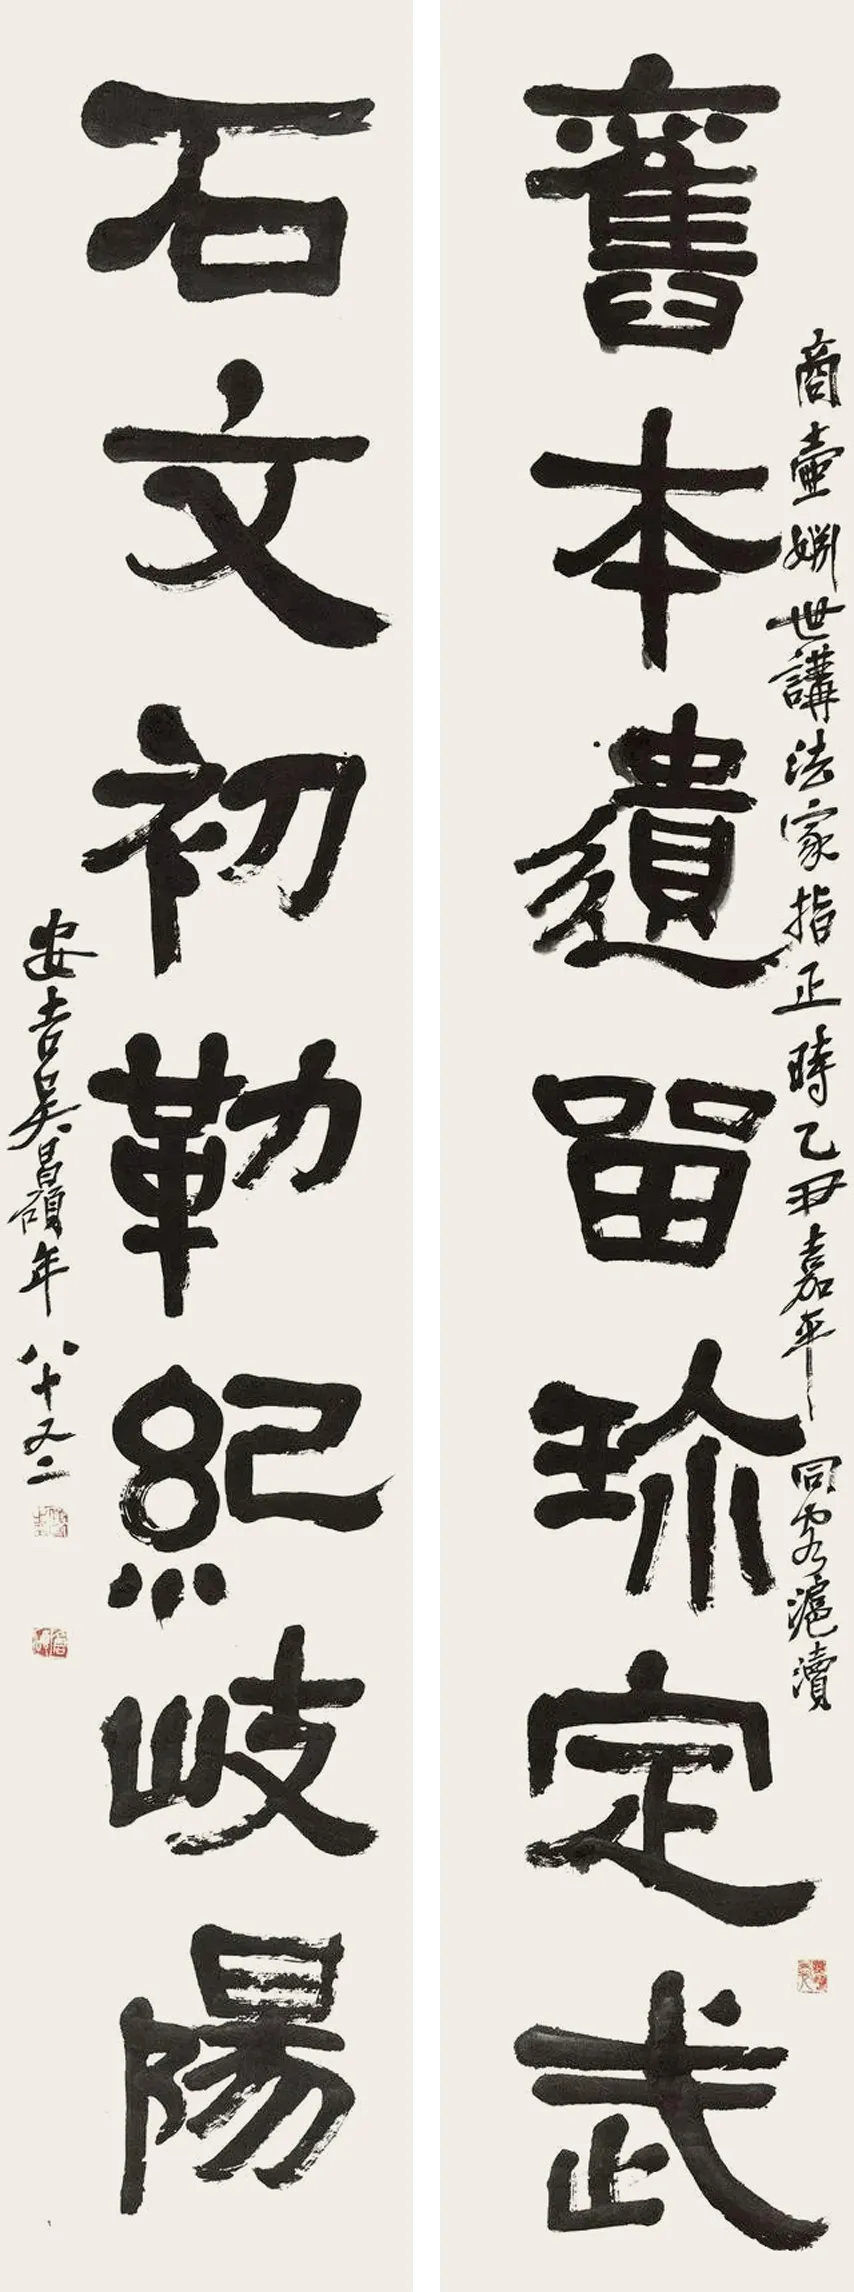 舊本遺留珍定武
商壺姻世講法家指正時乙丑嘉平同客滬瀆
石文初勒紀岐陽
安吉吳昌碩年八十又二